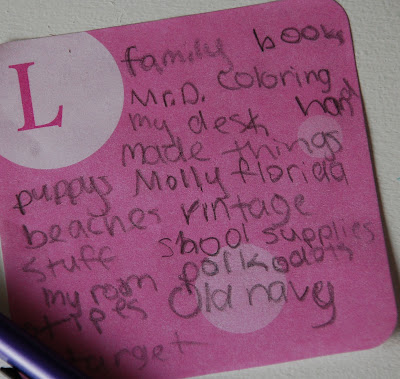 L
family books
Mr.D. coloring
my desk hand
made things
puppys Molly florida
beaches vintage
stuff shool supplies
my room polkadots
stripes Old navy
target